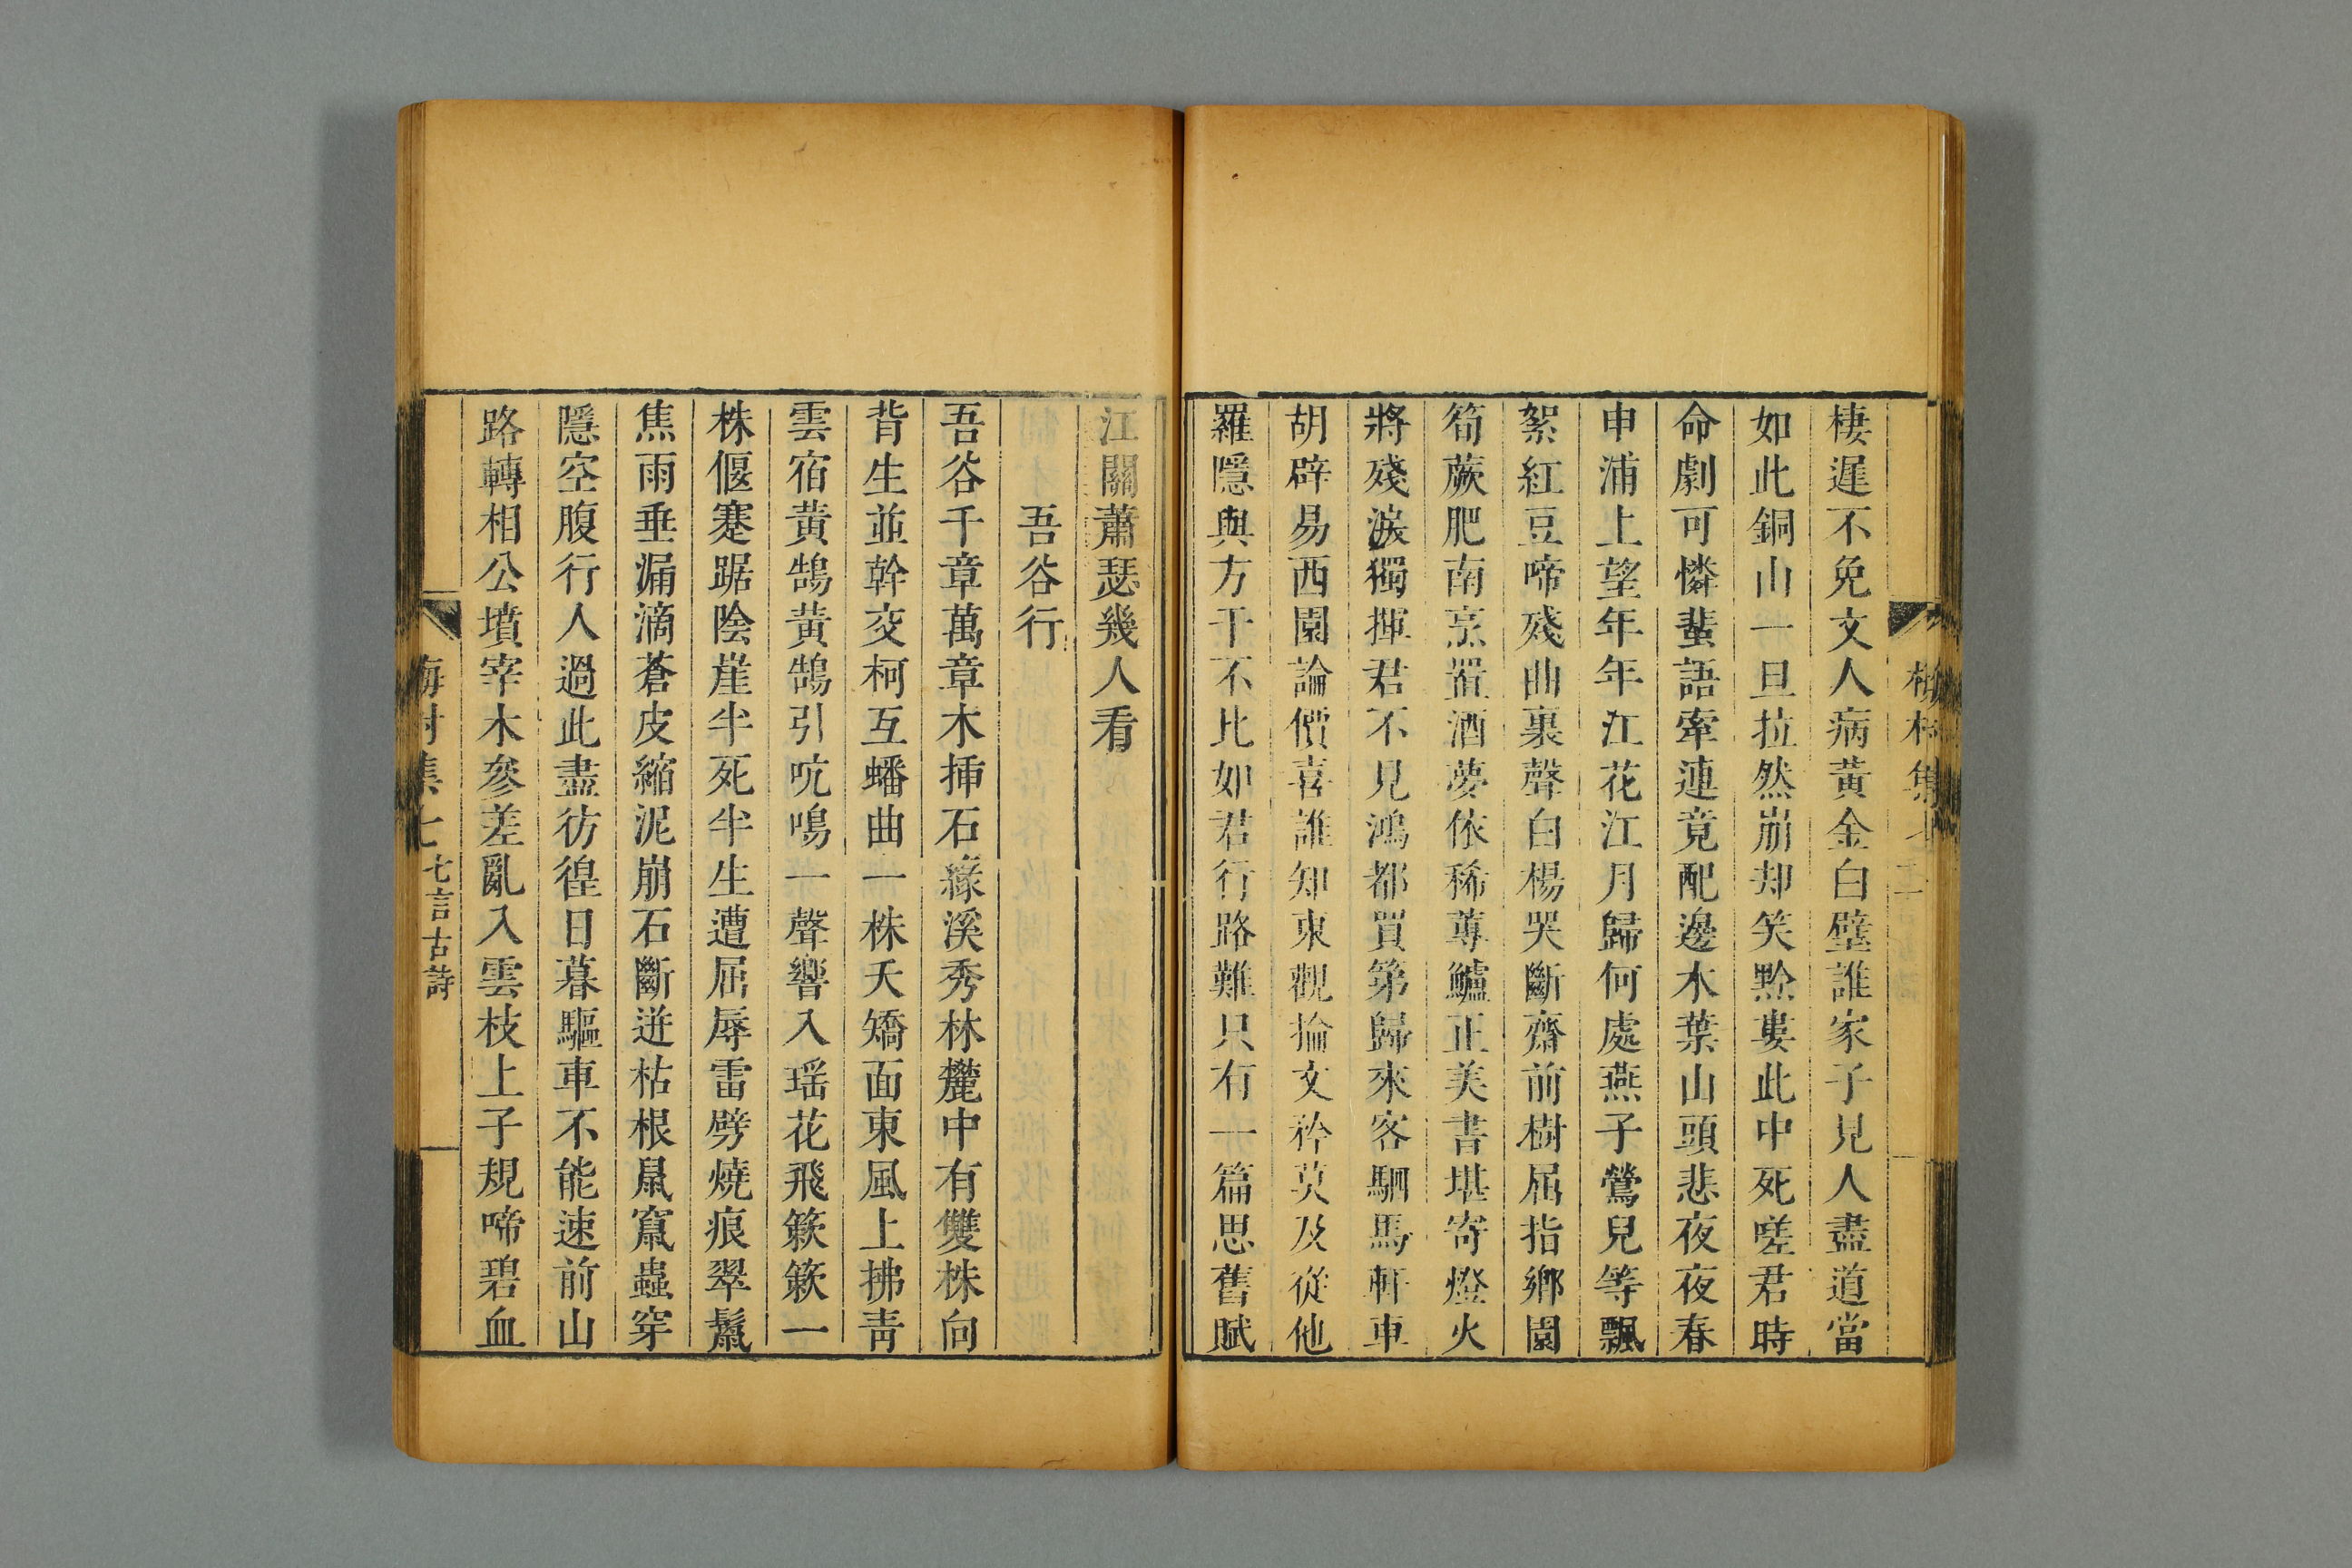 棲遲不免文人病黄金白璧誰家子見人盡道當
如此銅山一旦拉然崩却笑黔婁此中死嗟君時
命劇可憐蜚語牽連竟配邊木葉山頭悲夜夜春
申浦上望年年江花江月歸何處燕子鶯兒等飄
絮紅豆啼殘曲裏聲白楊哭斷齋前樹屈指鄉園
筍蕨肥南烹置酒夢依稀蓴鱸正美書堪寄燈火
將殘淚獨揮君不見鴻都買第歸來客駟馬軒車
胡辟易西園論價喜誰知東觀掄文矜莫及從他
羅隱與方干不比如君行路難只有一篇思舊賦
江關蕭瑟幾人看
吾谷行
吾谷千章萬章木插石緣溪秀林麓中有雙株向
背生並幹交柯互蟠曲一株夭矯面東風上拂青
雲宿黄鵠黄鵠引吭鳴一聲響入瑶花飛簌簌一
株偃蹇踞陰崖半死半生遭屈辱雷劈燒痕翠鬣
焦雨垂漏滴蒼皮縮泥崩石斷迸枯根鼠竄蟲穿
隱空腹行人過此盡彷徨日暮驅車不能速前山
路轉相公墳宰木參差亂入雲枝上子規啼碧血
七言古詩